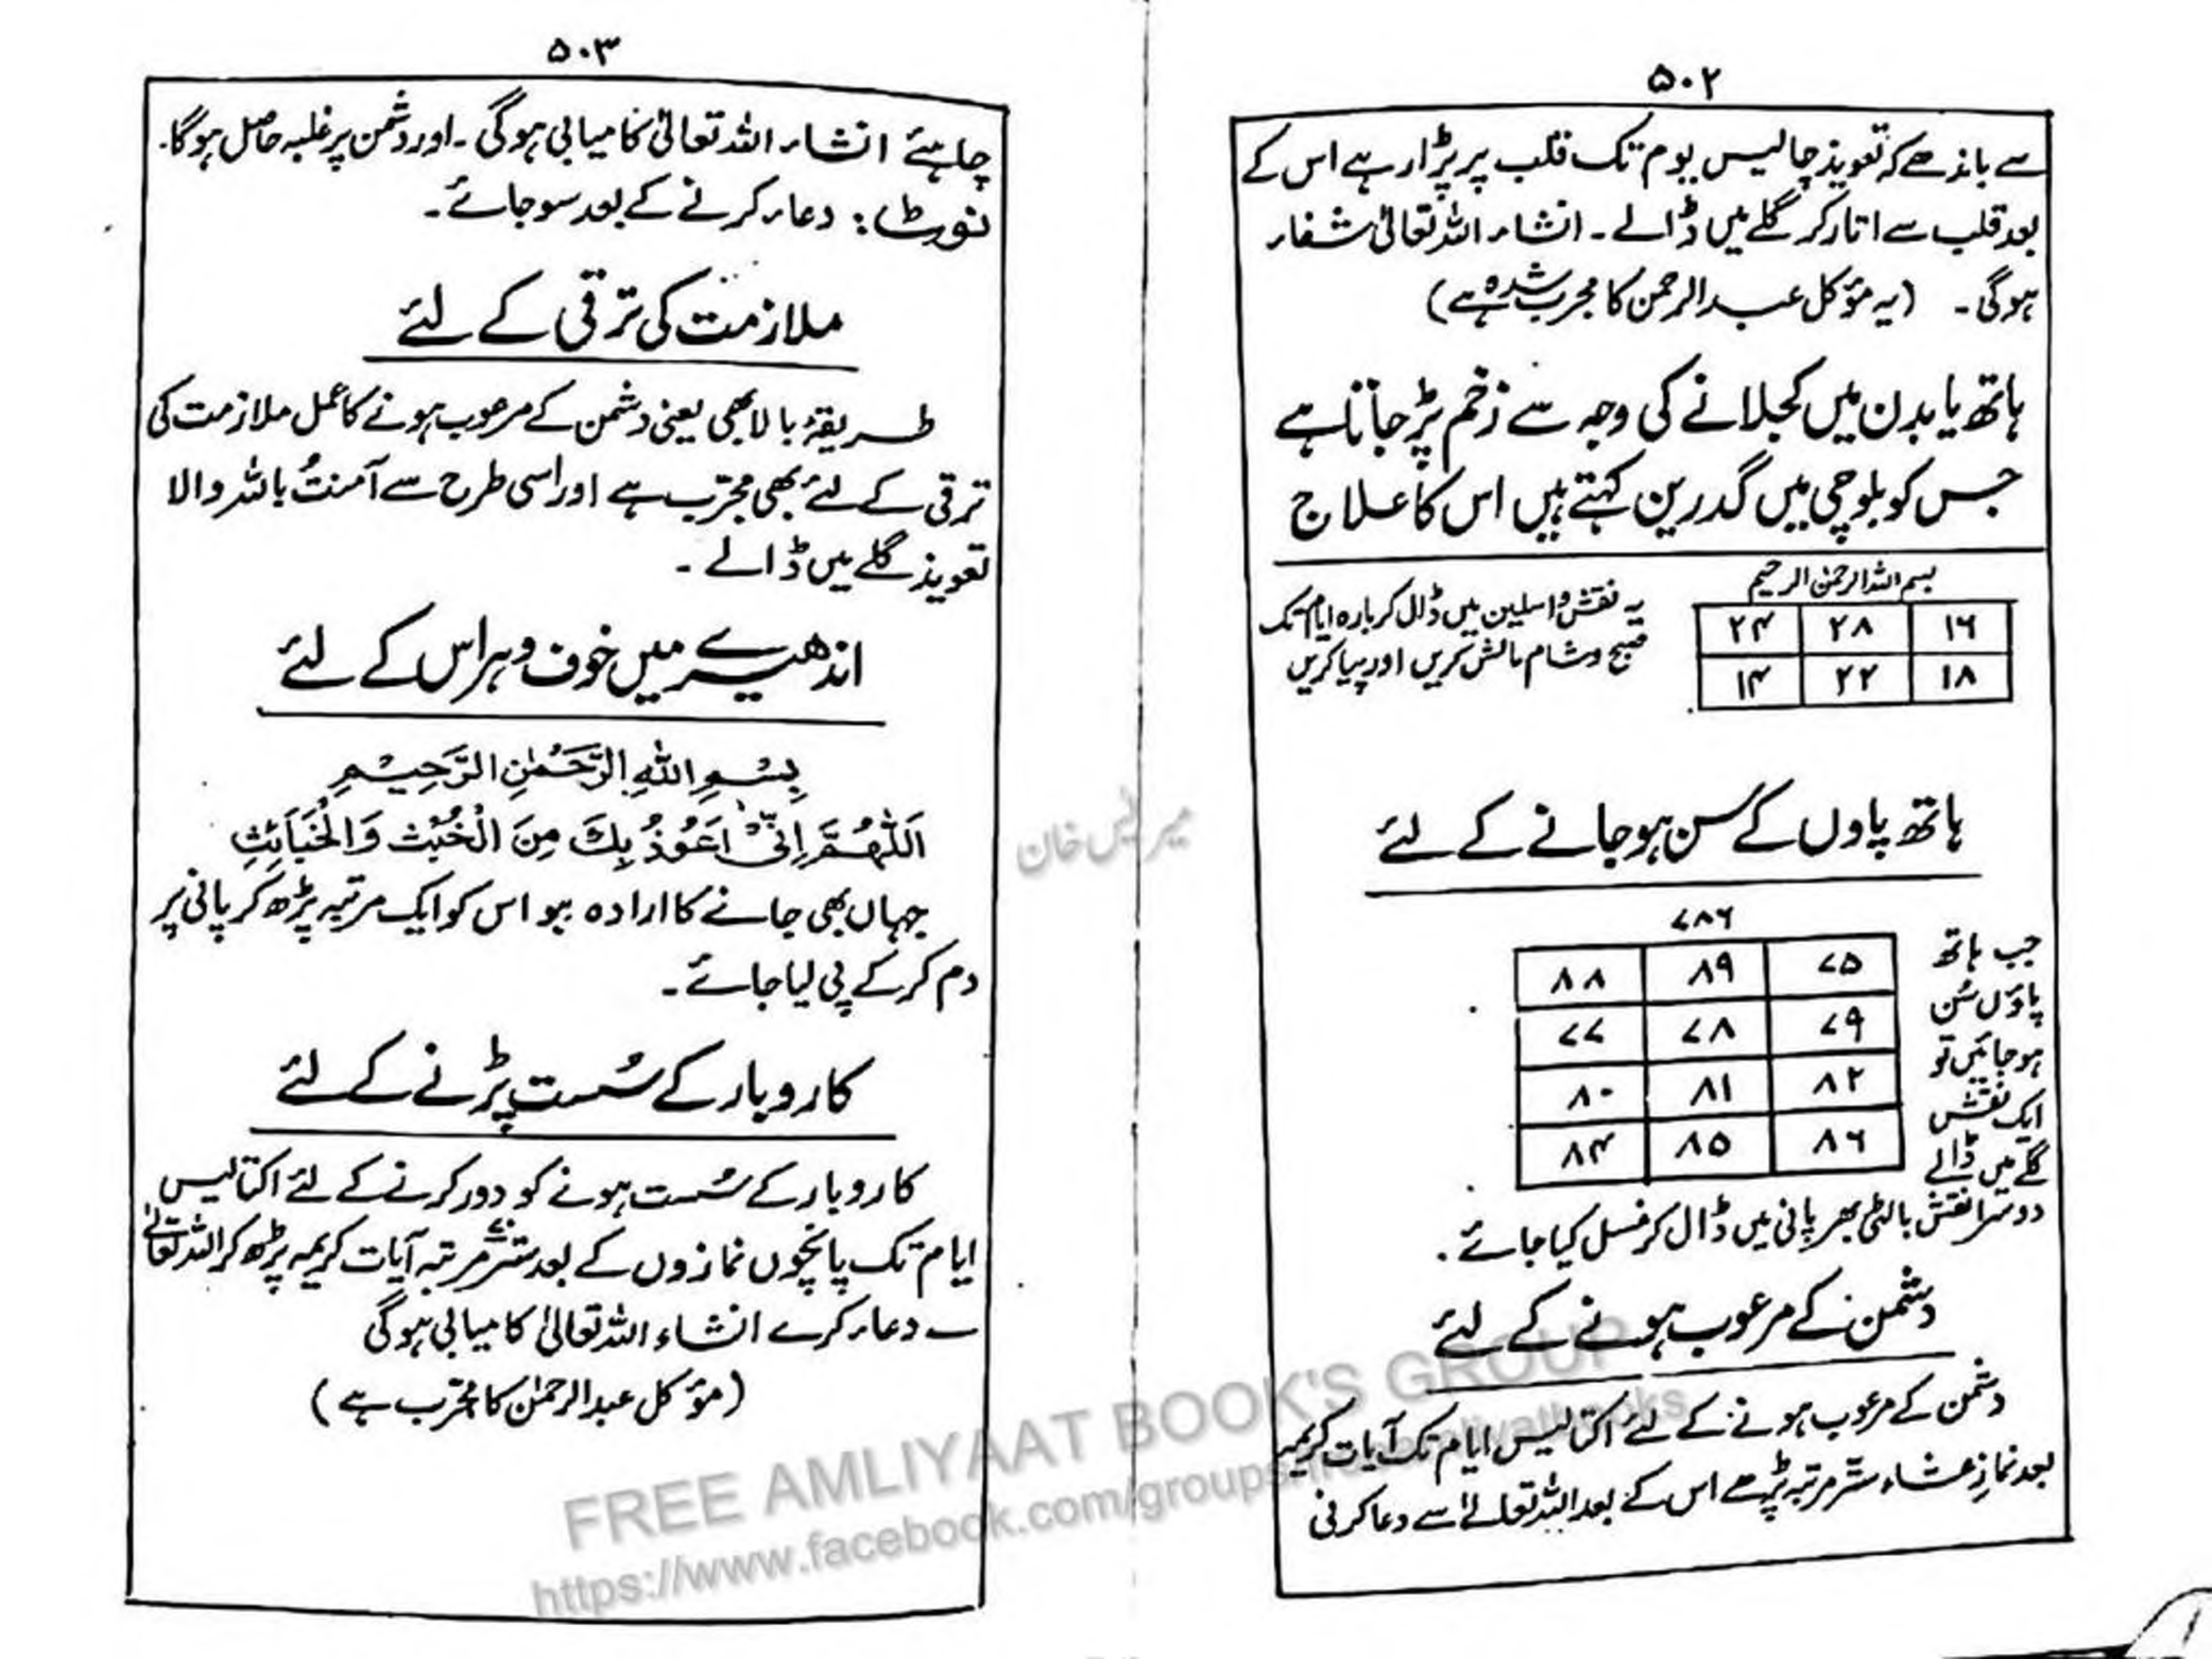 ۵۰۲
سے باندھے کہ تعویذ چالیس یوم تک قلب پر پڑا رہے اس کے
بعد قلب سے اتار کر گلے میں ڈالے۔ انشاء اللہ تعالیٰ شفاء
ہوگی۔ (یہ مؤکل عبدالرحمن کا مجرب شدہ ہے)
ہاتھ یا بدن میں کجلانے کی وجہ سے زخم پڑ جاتا ہے
جس کو بلوچی میں گدرین کہتے ہیں اس کا علاج
بسم اللہ الرحمٰن الرحیم
۱۶ ۲۸ ۲۴
۱۸ ۲۲ ۱۴
یہ نقش واسلین میں ڈال کر بارہ ایام تک
صبح و شام مالش کریں اور پیا کریں
ہاتھ پاوں کے سن ہو جانے کے لئے
۷۸۶
۷۵ ۸۹ ۸۸
۷۹ ۷۸ ۷۷
۸۲ ۸۱ ۸۰
۸۶ ۸۵ ۸۴
جب ہاتھ
پاؤں سُن
ہو جائیں تو
ایک نقش
گلے میں ڈالے
دوسرا نقش بالٹی بھر پانی میں ڈال کر غسل کیا جائے۔
دشمن کے مرعوب ہونے کے لئے
دشمن کے مرعوب ہونے کے لئے اکتالیس ایام تک آیات کریمہ
بعد نمازِ عشاء ستّر مرتبہ پڑھے اس کے بعد اللہ تعالیٰ سے دعا کرنی
۵۰۳
چاہئے انشاء اللہ تعالیٰ کامیابی ہوگی۔ اور دشمن پر غلبہ حاصل ہوگا۔
نوٹ: دعاء کرنے کے بعد سو جائے۔
ملازمت کی ترقی کے لئے
طریقۂ بالا بھی یعنی دشمن کے مرعوب ہونے کا عمل ملازمت کی
ترقی کے لئے بھی مجرّب ہے اور اسی طرح سے آمنتُ باللہ والا
تعویذ گلے میں ڈالے۔
اندھیرے میں خوف و ہراس کے لئے
بِسْمِ اللهِ الرَّحْمٰنِ الرَّحِيْمِ
اَللّٰهُمَّ اِنِّیْ اَعُوْذُ بِكَ مِنَ الْخُبُثِ وَالْخَبَائِثِ
جہاں بھی جانے کا ارادہ ہو اس کو ایک مرتبہ پڑھ کر پانی پر
دم کر کے پی لیا جائے۔
کاروبار کے سُست پڑنے کے لئے
کاروبار کے سُست ہونے کو دور کرنے کے لئے اکتالیس
ایام تک پانچوں نمازوں کے بعد ستّر مرتبہ آیات کریمہ پڑھ کر اللہ تعالیٰ
سے دعاء کرے انشاء اللہ تعالیٰ کامیابی ہوگی
(مؤکل عبدالرحمٰن کا مجرّب ہے)
خان
FREE AMLIYAAT BOOK'S GROUP
https://www.facebook.com/groups/freeamliyatbooks